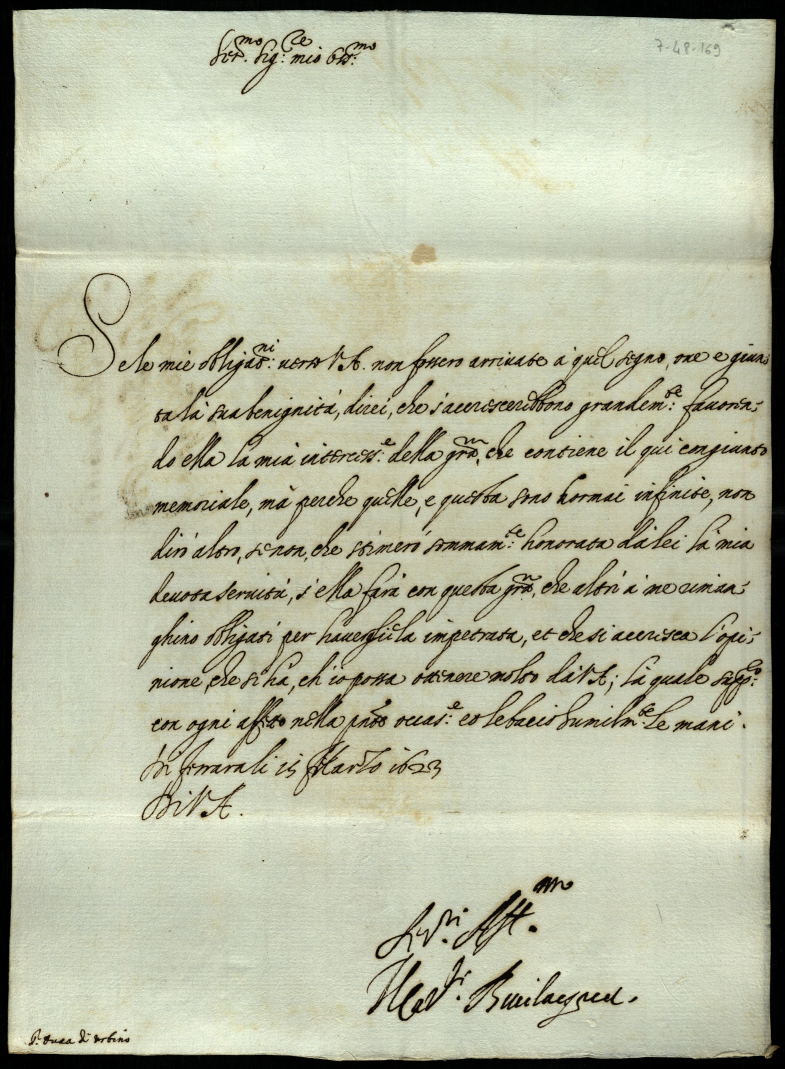 Ser.mo Sig.re mio Oss.mo
7-48-169
Se le mie obligat.ni verso V.A. non fossero arrivate à quel segno, ove è giun-
ta la sua benignità, direi, che s'accrescerebbono grandem.te favoren-
do ella la mia intercess.e della gr.a, che contiene il qui congiunto
memoriale, mà perche quelle, e questa sono hormai infinite, non
dirò altro, se non, che stimerò sommam.te honorata da lei la mia
devota servitù, s'ella farà con questa gr.a, che altri à me riman-
ghino obligati per havergliela impetrata, et che si accresca l'opi-
nione, che si hà, ch'io possa ottenere molto da V.A; la quale supp.co
con ogni affetto nella pnte occas.e et le bacio humilm.te le mani.
Di Ferrara li 15 Marzo 1623
Di V.A.
Ser.ri Aff.mo
S. Duca di Urbino